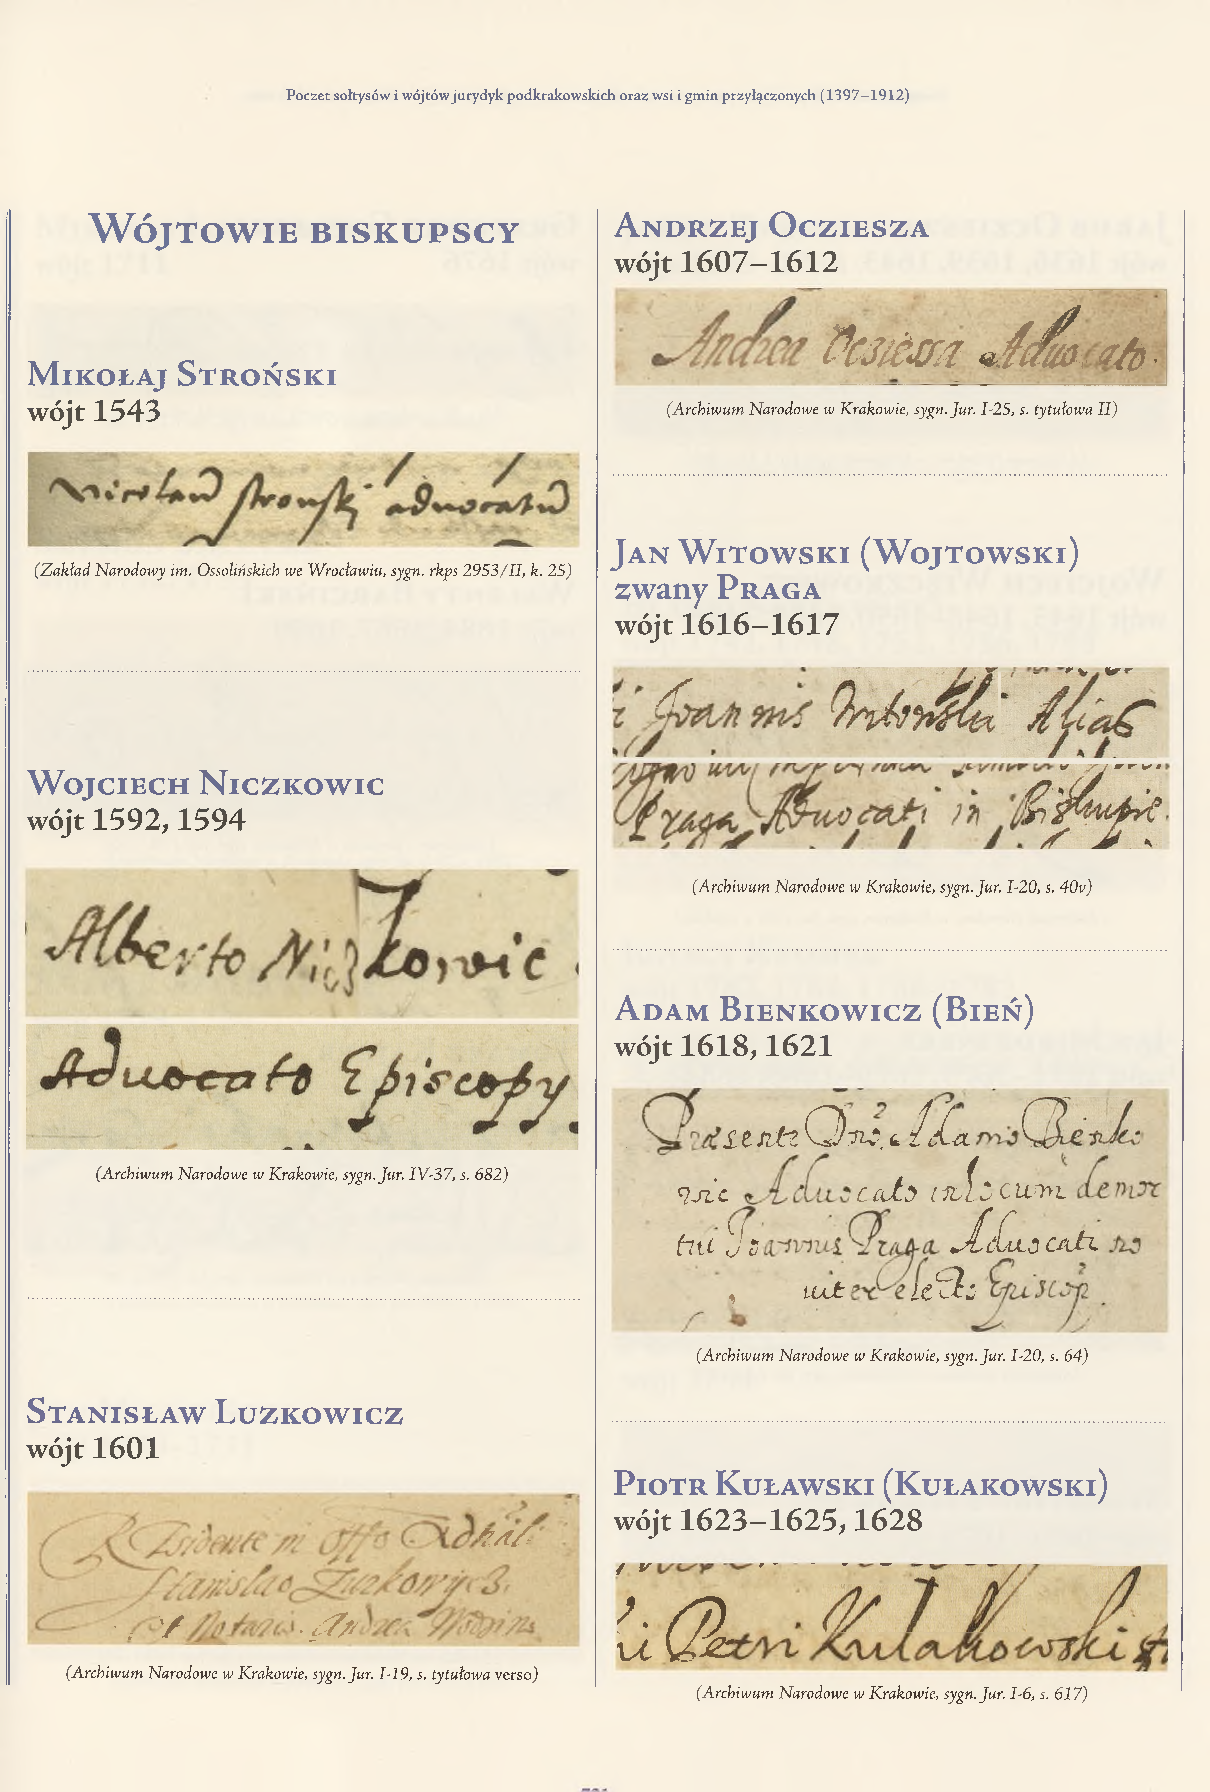 Poczet sołtysów i wójtów jurydyk podkrakowskich oraz wsi i gmin przyłączonych (1397–1912)
Wójtowie biskupscy
Mikołaj Stroński
wójt 1543
Nicolaus Stronskj advocatus
(Zakład Narodowy im. Ossolińskich we Wrocławiu, sygn. rkps 2953/II, k. 25)
Wojciech Niczkowic
wójt 1592, 1594
Alberto Niczkowic
Aduocato Episcopy
(Archiwum Narodowe w Krakowie, sygn. Jur. IV-37, s. 682)
Stanisław Luzkowicz
wójt 1601
Stanislao Luzkowycz
Et Notario Andrea
(Archiwum Narodowe w Krakowie, sygn. Jur. I-19, s. tytułowa verso)
Andrzej Ocziesza
wójt 1607–1612
Andrea Ocziessa Aduocato.
(Archiwum Narodowe w Krakowie, sygn. Jur. I-25, s. tytułowa II)
Jan Witowski (Wojtowski)
zwany Praga
wójt 1616–1617
Joannis Witowski Alias
Praga Aduocati in Biskupie.
(Archiwum Narodowe w Krakowie, sygn. Jur. I-20, s. 40v)
Adam Bienkowicz (Bień)
wójt 1618, 1621
Præsente Dno Adamo Bienko
wic Aduocato in locum demor
tui Joannis Praga Aduocati no
uiter electo Episcop
(Archiwum Narodowe w Krakowie, sygn. Jur. I-20, s. 64)
Piotr Kuławski (Kułakowski)
wójt 1623–1625, 1628
Petri Kulakowski
(Archiwum Narodowe w Krakowie, sygn. Jur. I-6, s. 617)